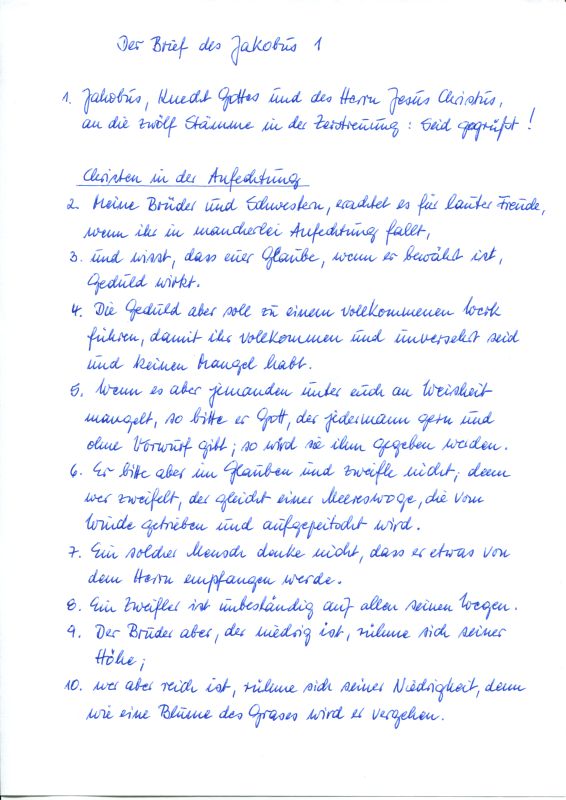 Der Brief des Jakobus 1
1. Jakobus, Knecht Gottes und des Herrn Jesus Christus,
an die zwölf Stämme in der Zerstreuung: Seid gegrüßt!
Christen in der Anfechtung
2. Meine Brüder und Schwestern, erachtet es für lauter Freude,
wenn ihr in mancherlei Anfechtung fallt,
3. und wisst, dass euer Glaube, wenn er bewährt ist,
Geduld wirkt.
4. Die Geduld aber soll zu einem vollkommenen Werk
führen, damit ihr vollkommen und unversehrt seid
und keinen Mangel habt.
5. Wenn es aber jemanden unter euch an Weisheit
mangelt, so bitte er Gott, der jedermann gern und
ohne Vorwurf gibt; so wird sie ihm gegeben werden.
6. Er bitte aber im Glauben und zweifle nicht; denn
wer zweifelt, der gleicht einer Meereswoge, die vom
Winde getrieben und aufgepeitscht wird.
7. Ein solcher Mensch denke nicht, dass er etwas von
dem Herrn empfangen werde.
8. Ein Zweifler ist unbeständig auf allen seinen Wegen.
9. Der Bruder aber, der niedrig ist, rühme sich seiner
Höhe;
10. wer aber reich ist, rühme sich seiner Niedrigkeit, denn
wie eine Blume des Grases wird er vergehen.